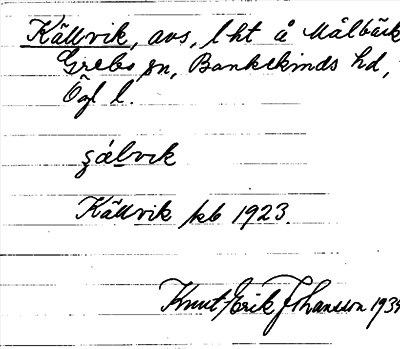 Källvik, avs, lht å Målbäck
Grebo sn, Bankekinds hd,
Ögl l.
çälvik
Källvik kb 1923.
Knut Erik Johansson 193